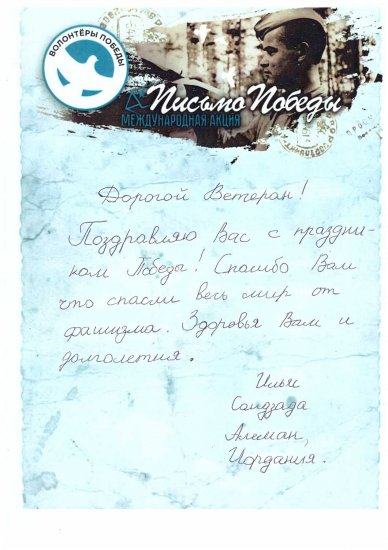 ВОЛОНТЁРЫ ПОБЕДЫ
Письмо Победы
МЕЖДУНАРОДНАЯ АКЦИЯ
Дорогой Ветеран!
Поздравляю Вас с праздни-
ком Победы! Спасибо Вам
что спасли весь мир от
фашизма. Здоровья Вам и
долголетия.
Ильяс
Саидзада
Амман,
Иордания.